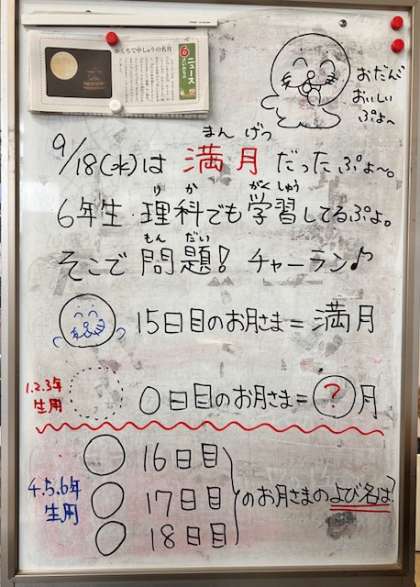 おだんご
おいしい
ぷよ〜
9/18(水)は 満月 だったぷよ〜。
まん げつ
6年生・理科でも学習してるぷよ。
り か
がくしゅう
そこで 問題! チャーラン♪
もん だい
15日目のお月さま=満月
1.2.3年
生用
0日目のお月さま=?月
4.5.6年
生用
16日目
17日目
18日目
のお月さまのよび名は?
ニュース